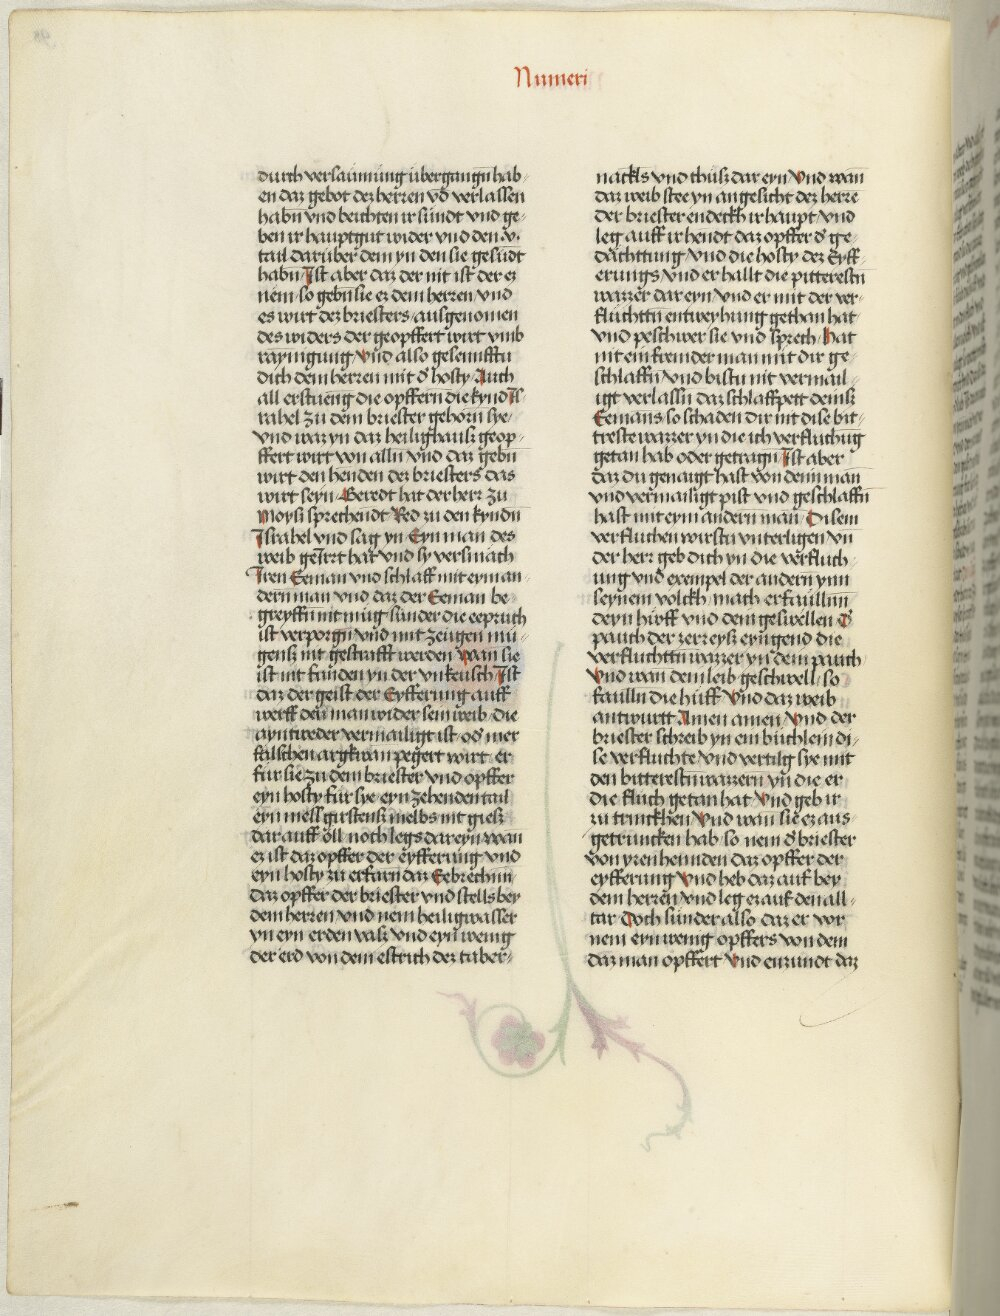 Numeri
durch versaumung übergangn hab-
en daz gebot dez herren vnd verlassen
habn vnd beichten ir sündt vnd ge-
ben ir hauptgut wider vnd den .v.
tail darüber dem yn den sie gesüdt
habn Ist aber daz der nit ist der ez
nem so gebn sie ez dem herren vnd
es wirt dez briesters ausgenomen
des widers der geopffert wirt vmb
raynigung Vnd also gesennfftu
dich dem herren mit d' hosty Auch
all erstneng die opffern die kynd Is-
rahel zu dem briester gehörn sye
vnd waz yn daz heilighauss geop-
ffert wirt von alln vnd daz gebn
wirt den henden dez briesters das
wirt seyn Geredt hat der herr zu
Moysi sprechendt Red zu den kyndn
Israhel vnd sag yn Eyn man des
weib geirrt hat vnd sy versmach
Iren Eeman vnd schlaff mit eym an-
dern man vnd daz der Eeman be-
greyffn nit mug sunder die eepruch
ist verporgn vnd mit zeugen mü-
genss nit gestrafft werden Wan sie
ist nit fünden yn der vnkeusch Ist
daz der geist der Eyfferung auff
werff den man wider sein weib die
ayntweder vermailigt ist od' mer
falschen argkwan pegert wirt er
für sie zu dem briester vnd opffer
eyn hosty für sye eyn zehenden tail
eyn mess girstenss melbs nit giess
dar auff öll noch legs dareyn wan
ez ist daz opffer der eyfferung vnd
eyn hosty zu erfarn daz Eebrechnn
daz opffer der briester vnd stells bey
dem herren vnd nem heiligwasser
yn eyn erden vass vnd eyn wenig
der erd von dem estrich dez taber-
nackls vnd thüss dar eyn Vnd wan
daz weib stee yn angesicht dez herre
der briester endeckh ir haupt vnd
leg auff ir hendt daz opffer d' ge-
dächttung vnd die hosty dez Eyff-
erungs vnd er hallt die pitterestn
wazzer dar eyn vnd er mit der ver-
fluchttn entweyhung gethan hat
vnd peschwer sie vnd sprech Hat
nit ein fremder man mit dir ge-
schlaffn vnd bistu nit vermail-
igt verlassn daz schlaffpett deinss
Eemans so schaden dir nit dise bit-
treste wazzer yn die ich verfluchng
getan hab oder getragn Ist aber
daz du genaigt hast von deim man
vnd vermailigt pist vnd geschlaffn
hast mit eym andern man Disem
verfluchen wirstu vnterligen vn
der herr geb dich yn die verfluch-
ung vnd exempel der andern ynn
seynem volckh mach erfaullnn
deyn hüff vnd dem geswellen d'
pauch der zerreyss eyngend die
verfluchttn wazzer yn dem pauch
Vnd wan dem leib geschwell so
faulln die hüff Vnd daz weib
antwurtt Amen amen Vnd der
briester schreib yn ein büchlem di-
se verfluchte vnd vertilg sye mit
den bitterestn wazzern yn die er
die fluch getan hat Vnd geb ir
zu trinckhen Vnd wan sie ez aus-
getruncken hab so nem d' briester
von yren hennden daz opffer der
eyfferung Vnd heb daz auf bey
dem herren vnd leg ez auf den all-
tar Doch sünder also daz er vor
nem eyn wenig opffers von dem
daz man opffert Vnd enzündt daz